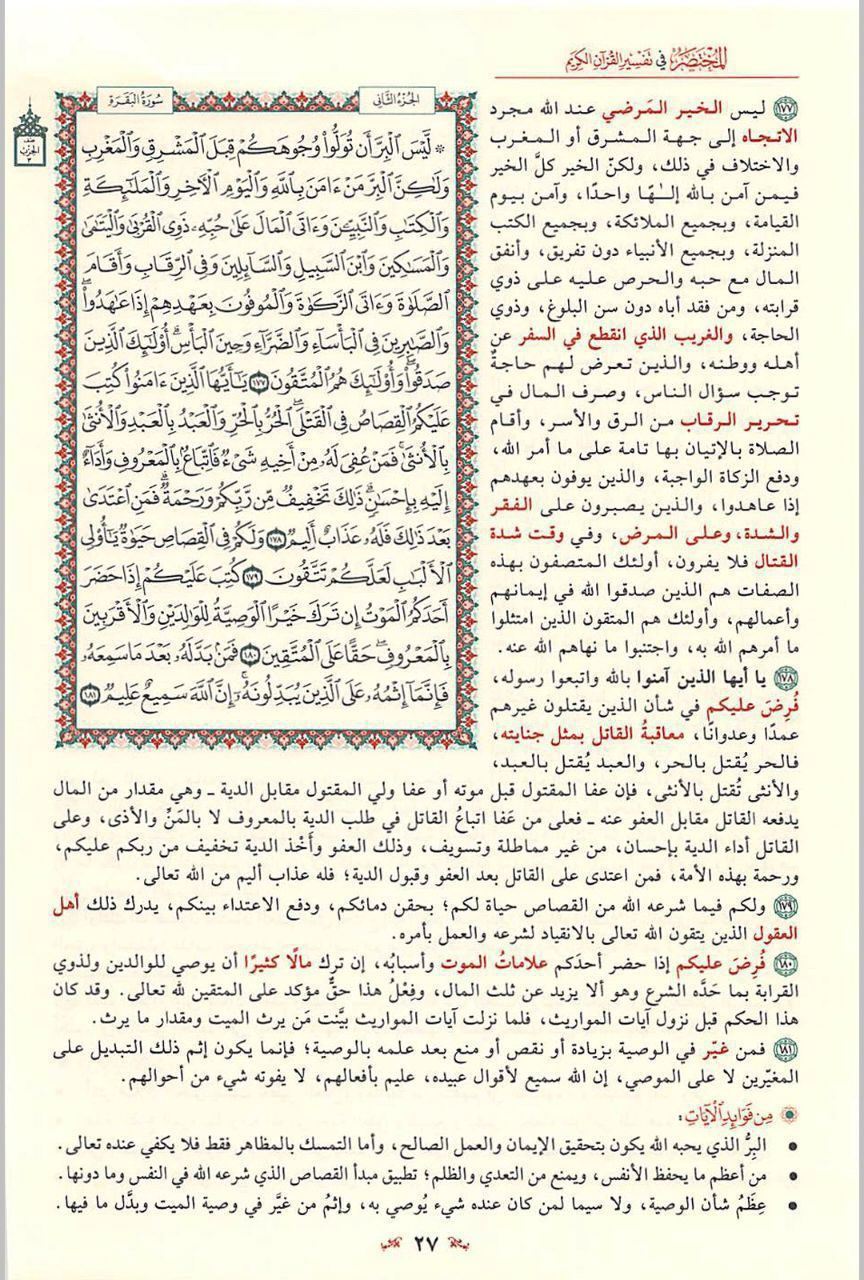 المختصر في تفسير القرآن الكريم
الجزء الثاني
سورة البقرة
۞ لَّيْسَ الْبِرَّ أَن تُوَلُّوا۟ وُجُوهَكُمْ قِبَلَ الْمَشْرِقِ وَالْمَغْرِبِ
وَلَٰكِنَّ الْبِرَّ مَنْ ءَامَنَ بِاللَّهِ وَالْيَوْمِ الْآخِرِ وَالْمَلَٰٓئِكَةِ
وَالْكِتَٰبِ وَالنَّبِيِّۦنَ وَءَاتَى الْمَالَ عَلَىٰ حُبِّهِۦ ذَوِى الْقُرْبَىٰ وَالْيَتَٰمَىٰ
وَالْمَسَٰكِينَ وَابْنَ السَّبِيلِ وَالسَّآئِلِينَ وَفِى الرِّقَابِ وَأَقَامَ
الصَّلَوٰةَ وَءَاتَى الزَّكَوٰةَ وَالْمُوفُونَ بِعَهْدِهِمْ إِذَا عَٰهَدُوا۟ۖ
وَالصَّٰبِرِينَ فِى الْبَأْسَآءِ وَالضَّرَّآءِ وَحِينَ الْبَأْسِۗ أُو۟لَٰٓئِكَ الَّذِينَ
صَدَقُوا۟ۖ وَأُو۟لَٰٓئِكَ هُمُ الْمُتَّقُونَ ١٧٧ يَٰٓأَيُّهَا الَّذِينَ ءَامَنُوا۟ كُتِبَ
عَلَيْكُمُ الْقِصَاصُ فِى الْقَتْلَىۖ الْحُرُّ بِالْحُرِّ وَالْعَبْدُ بِالْعَبْدِ وَالْأُنثَىٰ
بِالْأُنثَىٰۚ فَمَنْ عُفِىَ لَهُۥ مِنْ أَخِيهِ شَىْءٌ فَاتِّبَاعٌۢ بِالْمَعْرُوفِ وَأَدَآءٌ
إِلَيْهِ بِإِحْسَٰنٍۗ ذَٰلِكَ تَخْفِيفٌ مِّن رَّبِّكُمْ وَرَحْمَةٌۗ فَمَنِ اعْتَدَىٰ
بَعْدَ ذَٰلِكَ فَلَهُۥ عَذَابٌ أَلِيمٌ ١٧٨ وَلَكُمْ فِى الْقِصَاصِ حَيَوٰةٌ يَٰٓأُو۟لِى
الْأَلْبَٰبِ لَعَلَّكُمْ تَتَّقُونَ ١٧٩ كُتِبَ عَلَيْكُمْ إِذَا حَضَرَ
أَحَدَكُمُ الْمَوْتُ إِن تَرَكَ خَيْرًا الْوَصِيَّةُ لِلْوَٰلِدَيْنِ وَالْأَقْرَبِينَ
بِالْمَعْرُوفِۖ حَقًّا عَلَى الْمُتَّقِينَ ١٨٠ فَمَنۢ بَدَّلَهُۥ بَعْدَ مَا سَمِعَهُۥ
فَإِنَّمَآ إِثْمُهُۥ عَلَى الَّذِينَ يُبَدِّلُونَهُۥٓۚ إِنَّ اللَّهَ سَمِيعٌ عَلِيمٌ ١٨١
١٧٧ ليس الخير المَرضي عند الله مجرد
الاتجاه إلى جهة المشرق أو المغرب
والاختلاف في ذلك، ولكنّ الخير كلَّ الخير
فيمن آمن بالله إلـٰهًا واحدًا، وآمن بيوم
القيامة، وبجميع الملائكة، وبجميع الكتب
المنزلة، وبجميع الأنبياء دون تفريق، وأنفق
المال مع حبه والحرص عليه على ذوي
قرابته، ومن فقد أباه دون سن البلوغ، وذوي
الحاجة، والغريب الذي انقطع في السفر عن
أهله ووطنه، والذين تعرض لهم حاجةٌ
توجب سؤال الناس، وصرف المال في
تحرير الرقاب من الرق والأسر، وأقام
الصلاة بالإتيان بها تامة على ما أمر الله،
ودفع الزكاة الواجبة، والذين يوفون بعهدهم
إذا عاهدوا، والذين يصبرون على الفقر
والشدة، وعلى المرض، وفي وقت شدة
القتال فلا يفرون، أولئك المتصفون بهذه
الصفات هم الذين صدقوا الله في إيمانهم
وأعمالهم، وأولئك هم المتقون الذين امتثلوا
ما أمرهم الله به، واجتنبوا ما نهاهم الله عنه.
١٧٨ يا أيها الذين آمنوا بالله واتبعوا رسوله،
فُرِضَ عليكم في شأن الذين يقتلون غيرهم
عمدًا وعدوانًا، معاقبةُ القاتل بمثل جنايته،
فالحر يُقتل بالحر، والعبد يُقتل بالعبد،
والأنثى تُقتل بالأنثى، فإن عفا المقتول قبل موته أو عفا ولي المقتول مقابل الدية ـ وهي مقدار من المال
يدفعه القاتل مقابل العفو عنه ـ فعلى من عَفا اتباعُ القاتل في طلب الدية بالمعروف لا بالمَنِّ والأذى، وعلى
القاتل أداء الدية بإحسان، من غير مماطلة وتسويف، وذلك العفو وأَخْذ الدية تخفيف من ربكم عليكم،
ورحمة بهذه الأمة، فمن اعتدى على القاتل بعد العفو وقبول الدية؛ فله عذاب أليم من الله تعالى.
١٧٩ ولكم فيما شرعه الله من القصاص حياة لكم؛ بحقن دمائكم، ودفع الاعتداء بينكم، يدرك ذلك أهل
العقول الذين يتقون الله تعالى بالانقياد لشرعه والعمل بأمره.
١٨٠ فُرِضَ عليكم إذا حضر أحدَكم علاماتُ الموت وأسبابُه، إن ترك مالًا كثيرًا أن يوصي للوالدين ولذوي
القرابة بما حَدَّه الشرع وهو ألا يزيد عن ثلث المال، وفِعْلُ هذا حقٌّ مؤكد على المتقين لله تعالى. وقد كان
هذا الحكم قبل نزول آيات المواريث، فلما نزلت آيات المواريث بيَّنت مَن يرث الميت ومقدار ما يرث.
١٨١ فمن غيّر في الوصية بزيادة أو نقص أو منع بعد علمه بالوصية؛ فإنما يكون إثم ذلك التبديل على
المغيّرين لا على الموصي، إن الله سميع لأقوال عبيده، عليم بأفعالهم، لا يفوته شيء من أحوالهم.
من فوائد الآيات:
• البِرُّ الذي يحبه الله يكون بتحقيق الإيمان والعمل الصالح، وأما التمسك بالمظاهر فقط فلا يكفي عنده تعالى.
• من أعظم ما يحفظ الأنفس، ويمنع من التعدي والظلم؛ تطبيق مبدأ القصاص الذي شرعه الله في النفس وما دونها.
• عِظَمُ شأن الوصية، ولا سيما لمن كان عنده شيء يُوصي به، وإثمُ من غيَّر في وصية الميت وبدَّل ما فيها.
٢٧